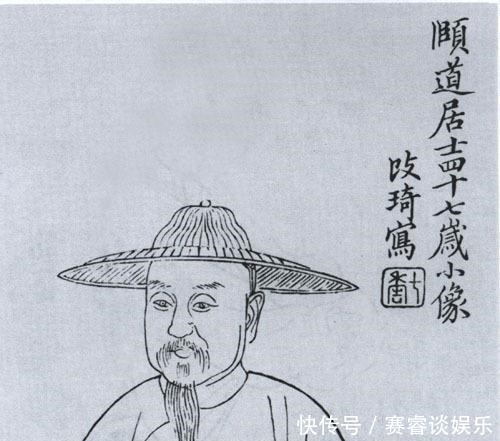 頤道居士四十七嵗小像
改琦寫
快传号 / 赛睿谈娱乐